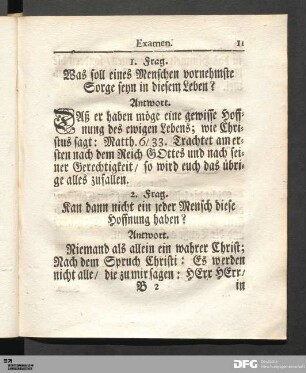 Examen. 11
1. Frag.
Was soll eines Menschen vornehmste
Sorge seyn in diesem Leben?
Antwort.
Daß er haben möge eine gewisse Hoff-
nung des ewigen Lebens; wie Chri-
stus sagt: Matth. 6/33. Trachtet am er-
sten nach dem Reich GOttes und nach sei-
ner Gerechtigkeit/ so wird euch das übri-
ge alles zufallen.
2. Frag.
Kan dann nicht ein jeder Mensch diese
Hoffnung haben?
Antwort.
Niemand als allein ein wahrer Christ;
Nach dem Spruch Christi: Es werden
nicht alle/ die zu mir sagen: HErr HErr/
B 2 in
DFG